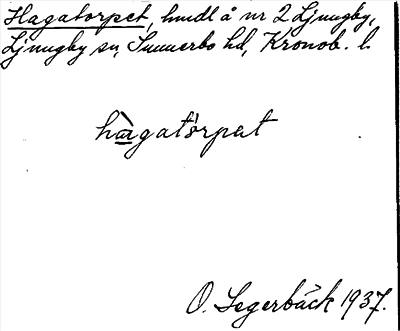 Hagatorpet, hmdl å nr 2 Ljungby,
Ljungby sn, Sunnerbo hd, Kronob. l.
hàgatòrpet
O. Segerbäck 1937.